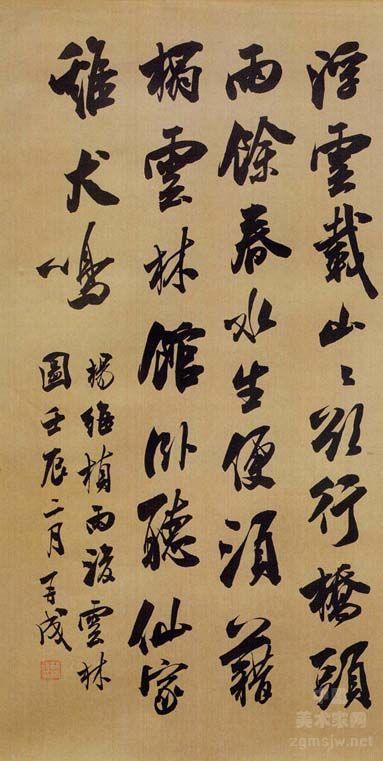 浮雲載山〻欲行橋頭
雨餘春水生便須藉
榻雲林館卧聽仙家
雞犬鳴
楊維楨雨後雲林
圖壬辰二月
美术家网
zgmsjw.net